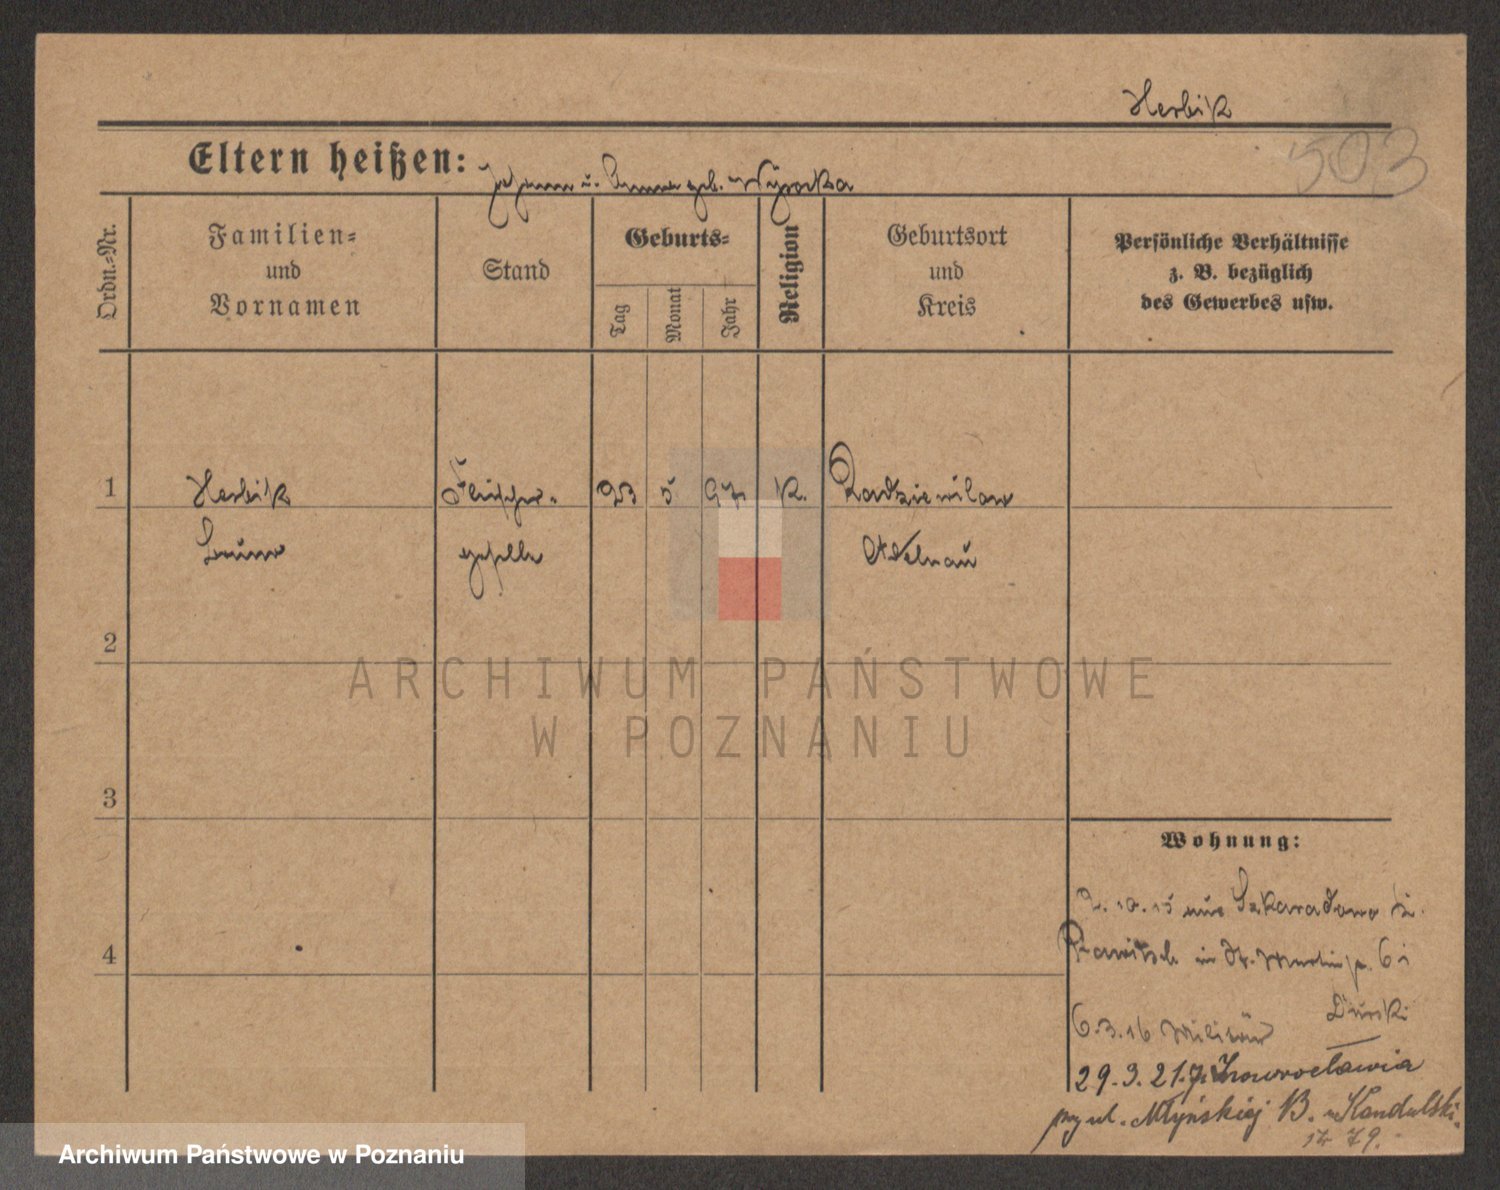 Herbik
503
Eltern heißen: Johann u. Anna geb. Wysocka
Ordn.=Nr.
Familien=
und
Vornamen
Stand
Geburts=
Tag
Monat
Jahr
Religion
Geburtsort
und
Kreis
Persönliche Verhältnisse
z. B. bezüglich
des Gewerbes usw.
1
Herbik
Fleischer-
23
5
97
K.
Radziwilow
geselle
Adelnau
2
ARCHIWUM PAŃSTWOWE
W POZNANIU
3
Wohnung:
4
2.10.15 aus Szkaradowo
Rawitsch in St. Martinstr.
6.3.16 Militär
29.3.21. z Inowrocławia
przy ul. Młyńskiej B. u Kandulski
Archiwum Państwowe w Poznaniu